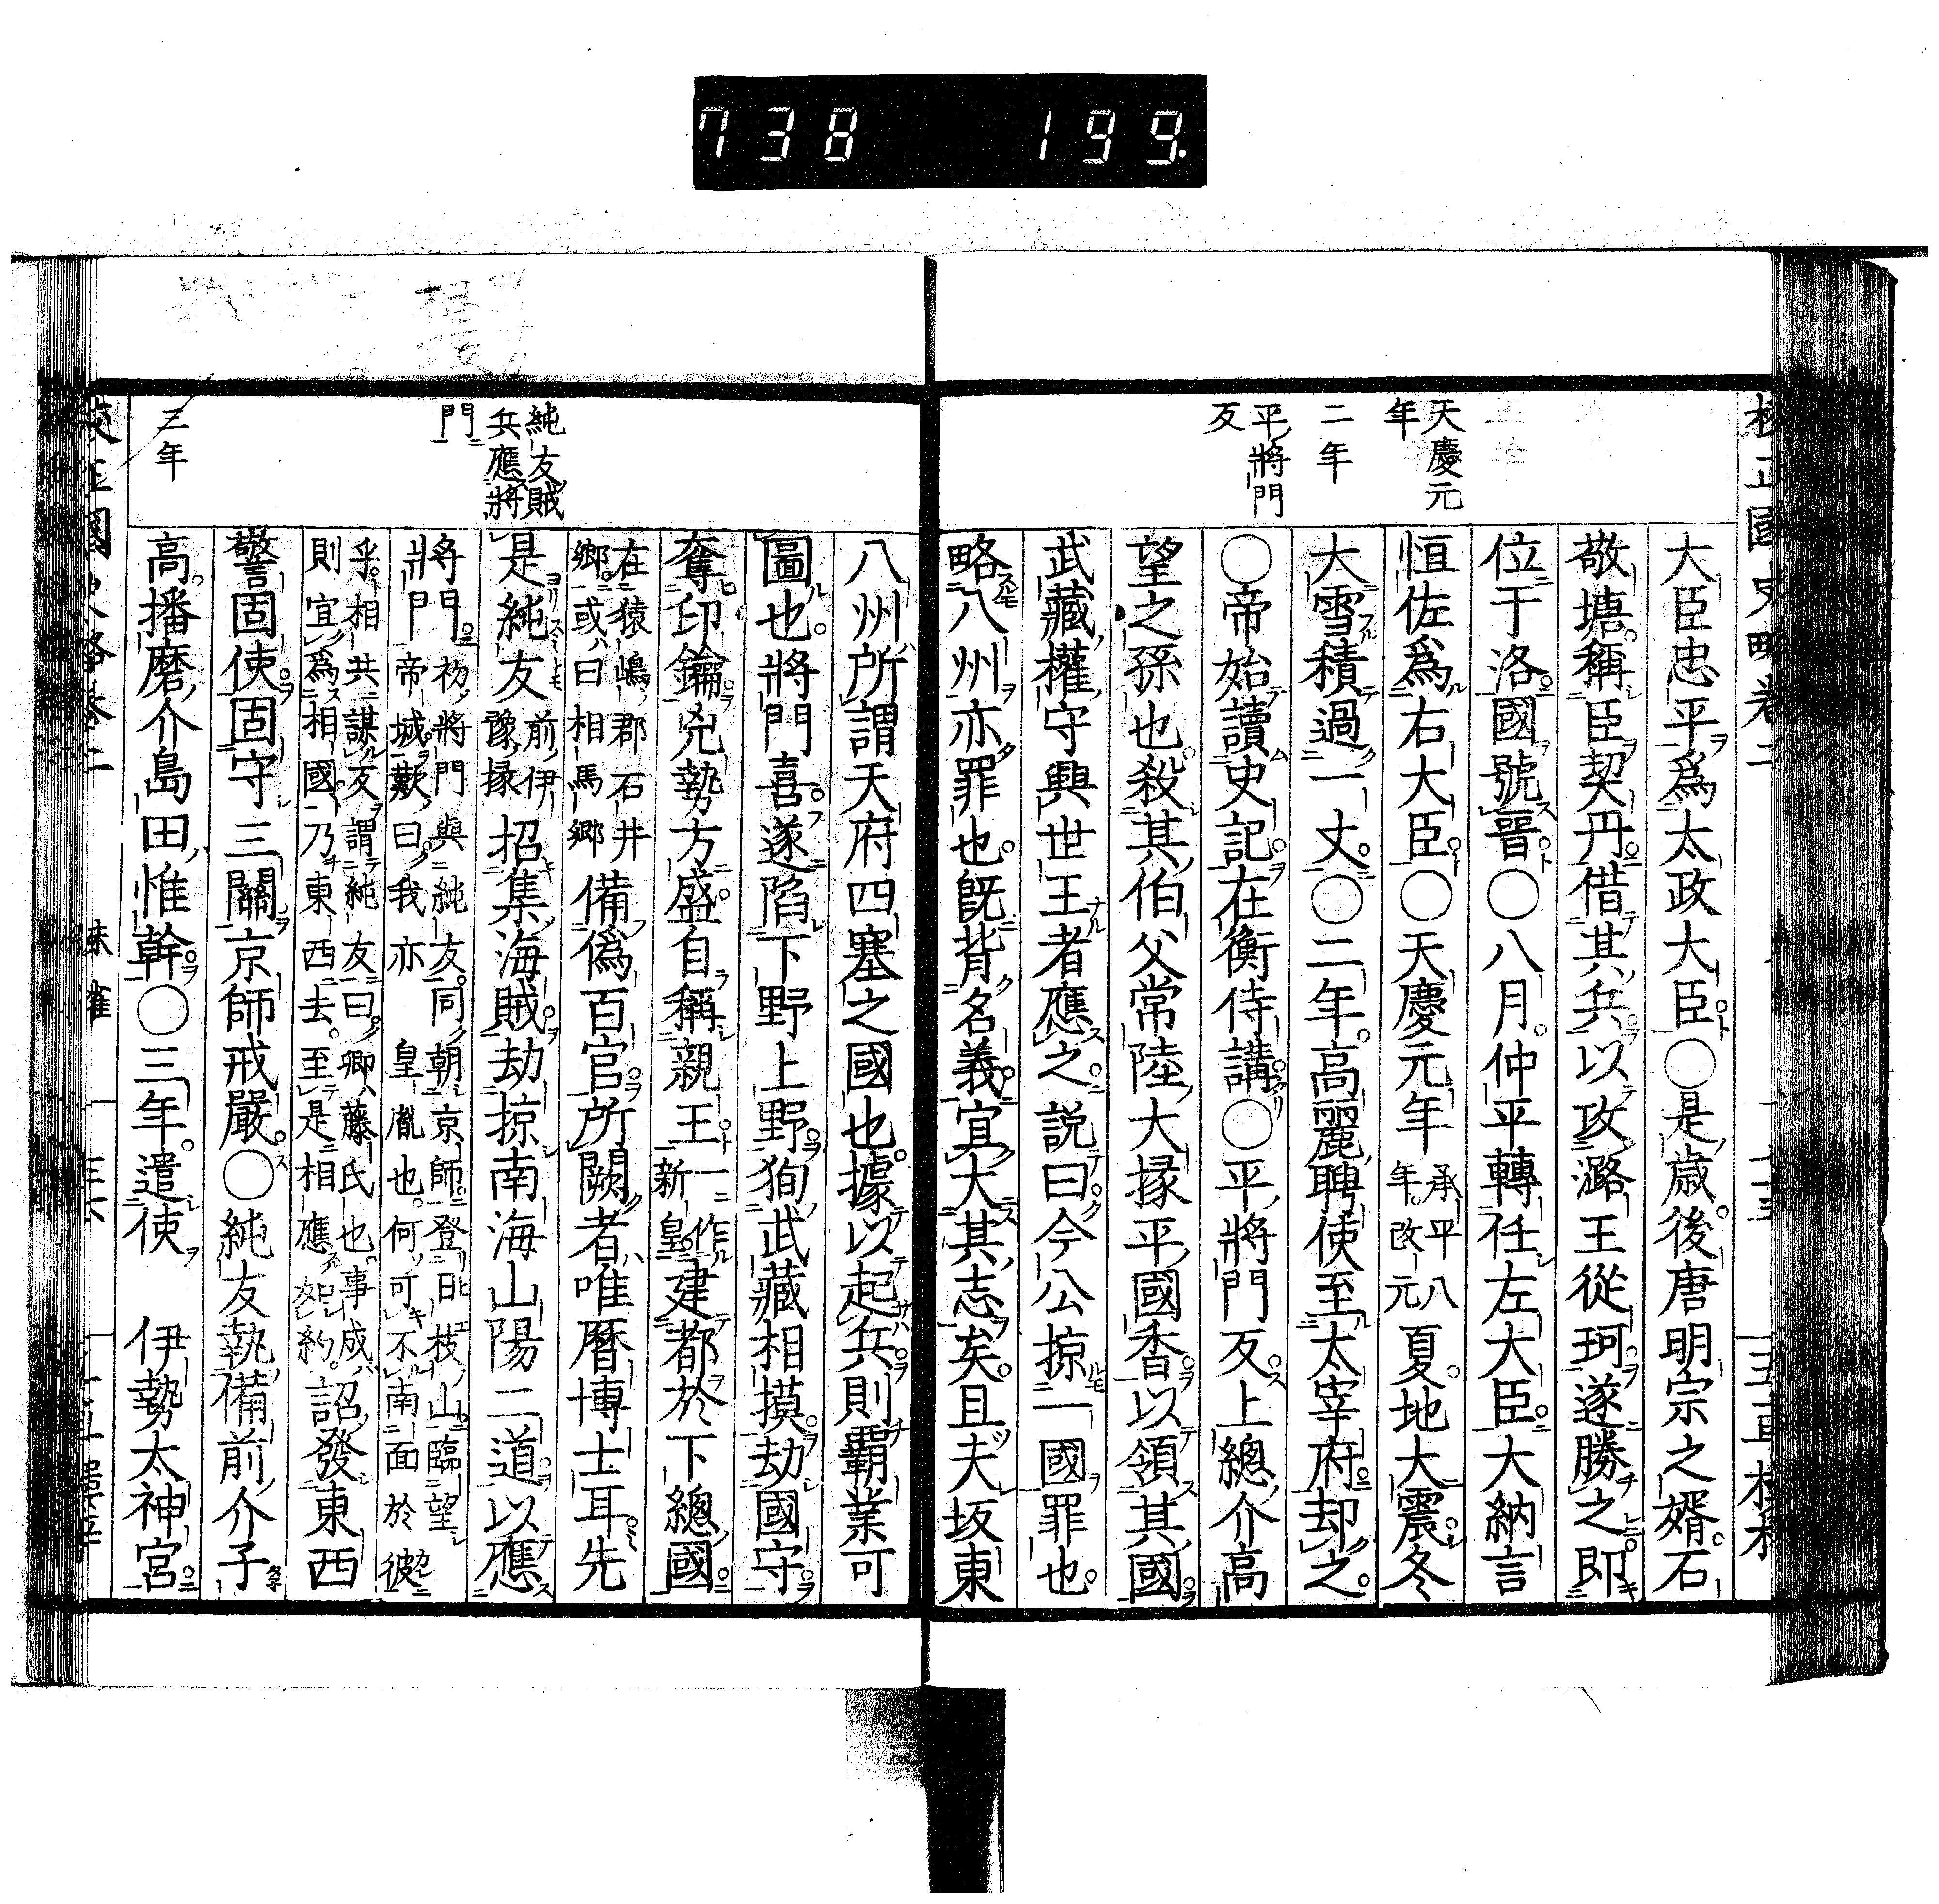 738 199.
天慶元
年
二年
平將門
反
大臣忠平爲太政大臣〇是歲後唐明宗之婿石
敬塘稱臣契丹借其兵以攻潞王從珂遂勝之即
位于洛國號晉〇八月仲平轉任左大臣大納言
恒佐爲右大臣〇天慶元年承平八年改元夏地大震冬
大雪積過一丈〇二年高麗聘使至太宰府却之
〇帝始讀史記在衡侍講〇平將門反上總介高
望之孫也殺其伯父常陸大掾平國香以領其國
武藏權守興世王者應之說曰今公掠一國罪也
略八州亦罪也既背名義宜大其志矣且夫坂東
純友賊
兵應將
門
三年
八州所謂天府四塞之國也據以起兵則覇業可
圖也將門喜遂陷下野上野狥武藏相摸劫國守
奪印鑰兇勢方盛自稱親王一作新皇建都於下總國
在猿嶋郡石井鄉或曰相馬鄉備僞百官所闕者唯曆博士耳先
是純友前伊豫掾招集海賊劫掠南海山陽二道以應
將門初將門與純友同朝京師登比枝山臨望帝城歎曰我亦皇胤也何可不南面於彼
乎相共謀友謂純友曰卿藤氏也事成則宜爲相國乃東西去至是相應如約詔發東西
警固使固守三關京師戒嚴〇純友執備前介子
高播磨介島田惟幹〇三年遣使伊勢太神宮